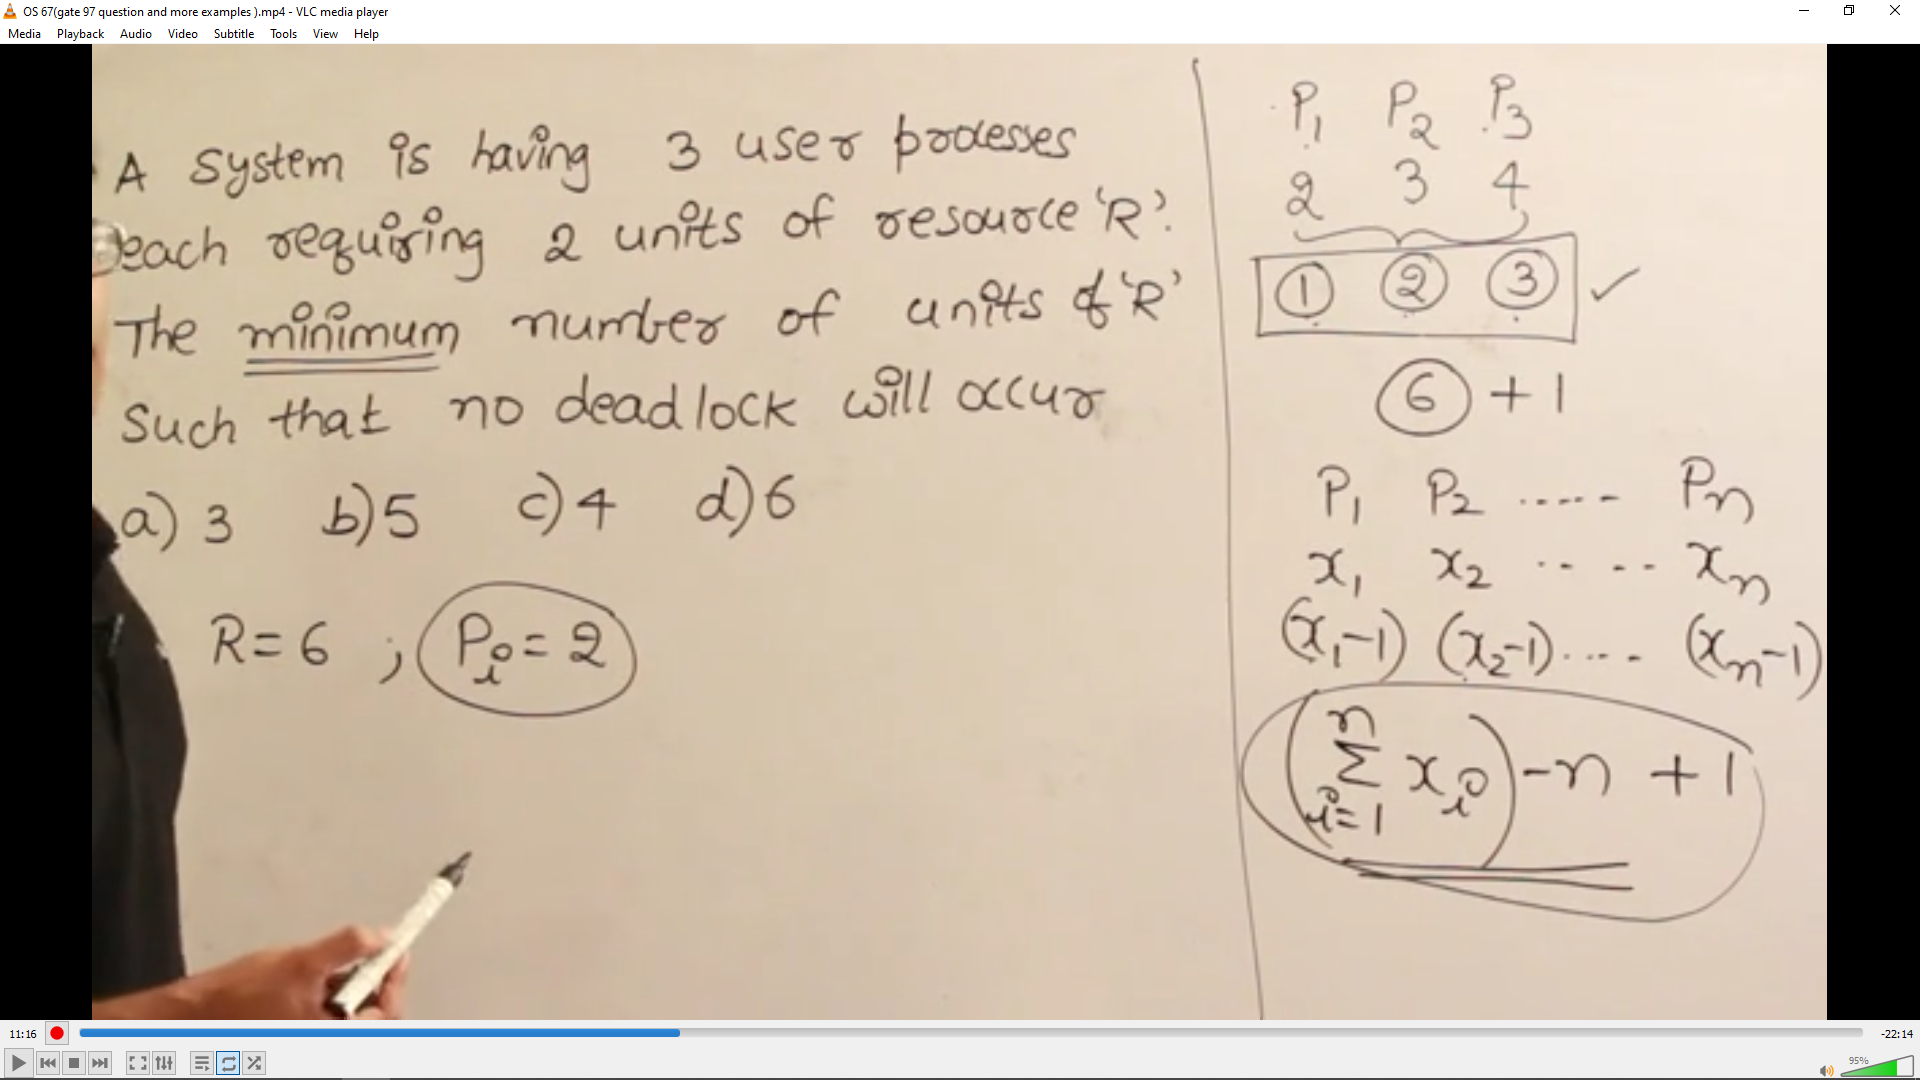 OS 67(gate 97 question and more examples ).mp4 - VLC media player
Media Playback Audio Video Subtitle Tools View Help
A System is having 3 user processes
each requiring 2 units of resource 'R'.
The minimum number of units of 'R'
Such that no deadlock will occur
a) 3 b) 5 c) 4 d) 6
R = 6 ; Pi = 2
P1 P2 P3
2 3 4
1 2 3 ✓
6 + 1
P1 P2 ..... Pn
x1 x2 ..... xn
(x1-1) (x2-1) .... (xn-1)
(∑ i=1 n xi) - n + 1
11:16 -22:14
95%